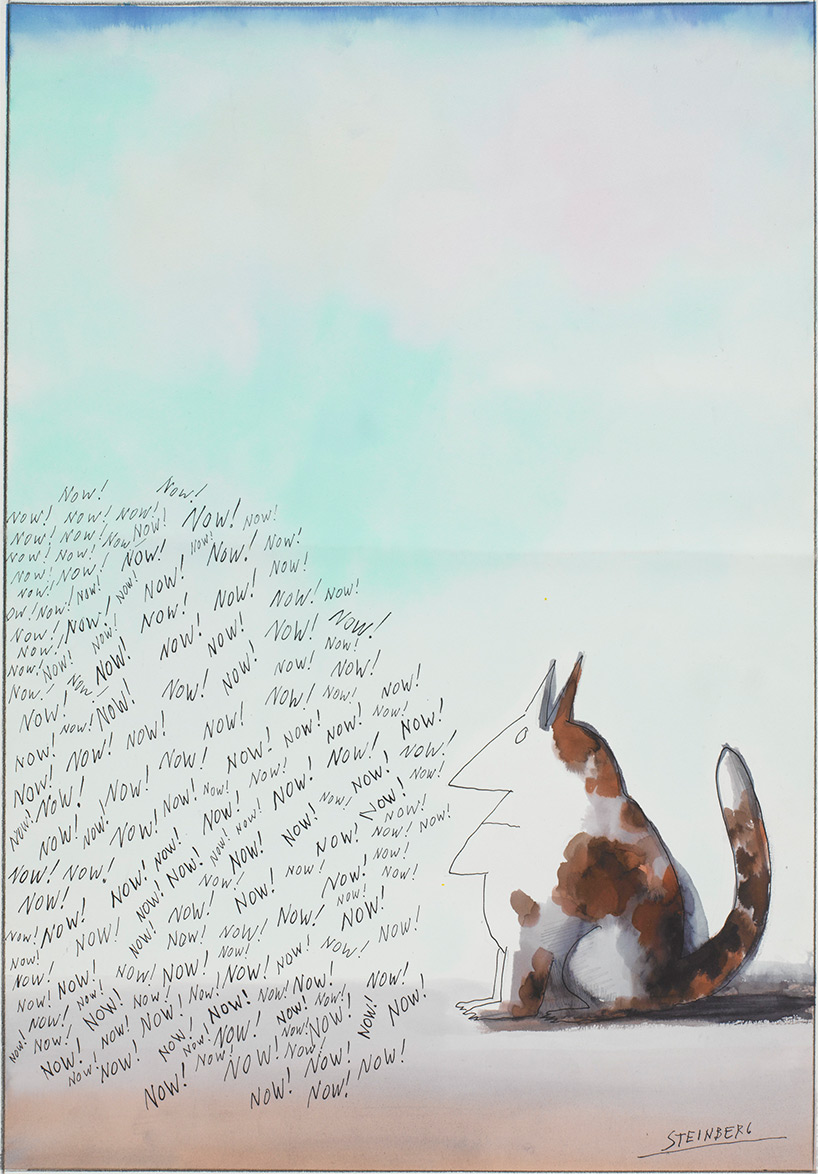 NOW! NOW!
NOW! NOW! NOW! NOW! NOW!
NOW! NOW! NOW NOW!
NOW! NOW! NOW! NOW! NOW! NOW!
NOW! NOW! NOW! NOW!
NOW! NOW! NOW! NOW! NOW! NOW!
OW! NOW! NOW! NOW!
NOW! NOW! NOW! NOW! NOW! NOW!
NOW! NOW! NOW!
NOW! NOW! NOW! NOW! NOW!
NOW! NOW! NOW! NOW! NOW! NOW! NOW!
NOW! NOW! NOW! NOW! NOW!
NOW! NOW! NOW! NOW! NOW! NOW! NOW!
NOW! NOW! NOW! NOW! NOW! NOW!
NOW! NOW! NOW! NOW! NOW! NOW! NOW! NOW!
NOW! NOW! NOW! NOW! NOW! NOW! NOW! NOW!
NOW! NOW! NOW! NOW! NOW! NOW! NOW! NOW!
NOW! NOW! NOW! NOW! NOW! NOW! NOW!
NOW! NOW! NOW! NOW! NOW! NOW! NOW!
NOW! NOW! NOW! NOW! NOW! NOW! NOW! NOW!
NOW! NOW! NOW! NOW! NOW! NOW! NOW!
NOW! NOW! NOW! NOW! NOW! NOW! NOW! NOW!
NOW! NOW! NOW! NOW! NOW! NOW! NOW! NOW!
NOW! NOW! NOW! NOW! NOW! NOW! NOW! NOW!
NOW! NOW! NOW! NOW! NOW! NOW! NOW!
NOW! NOW! NOW! NOW! NOW!
NOW! NOW! NOW!
STEINBERG